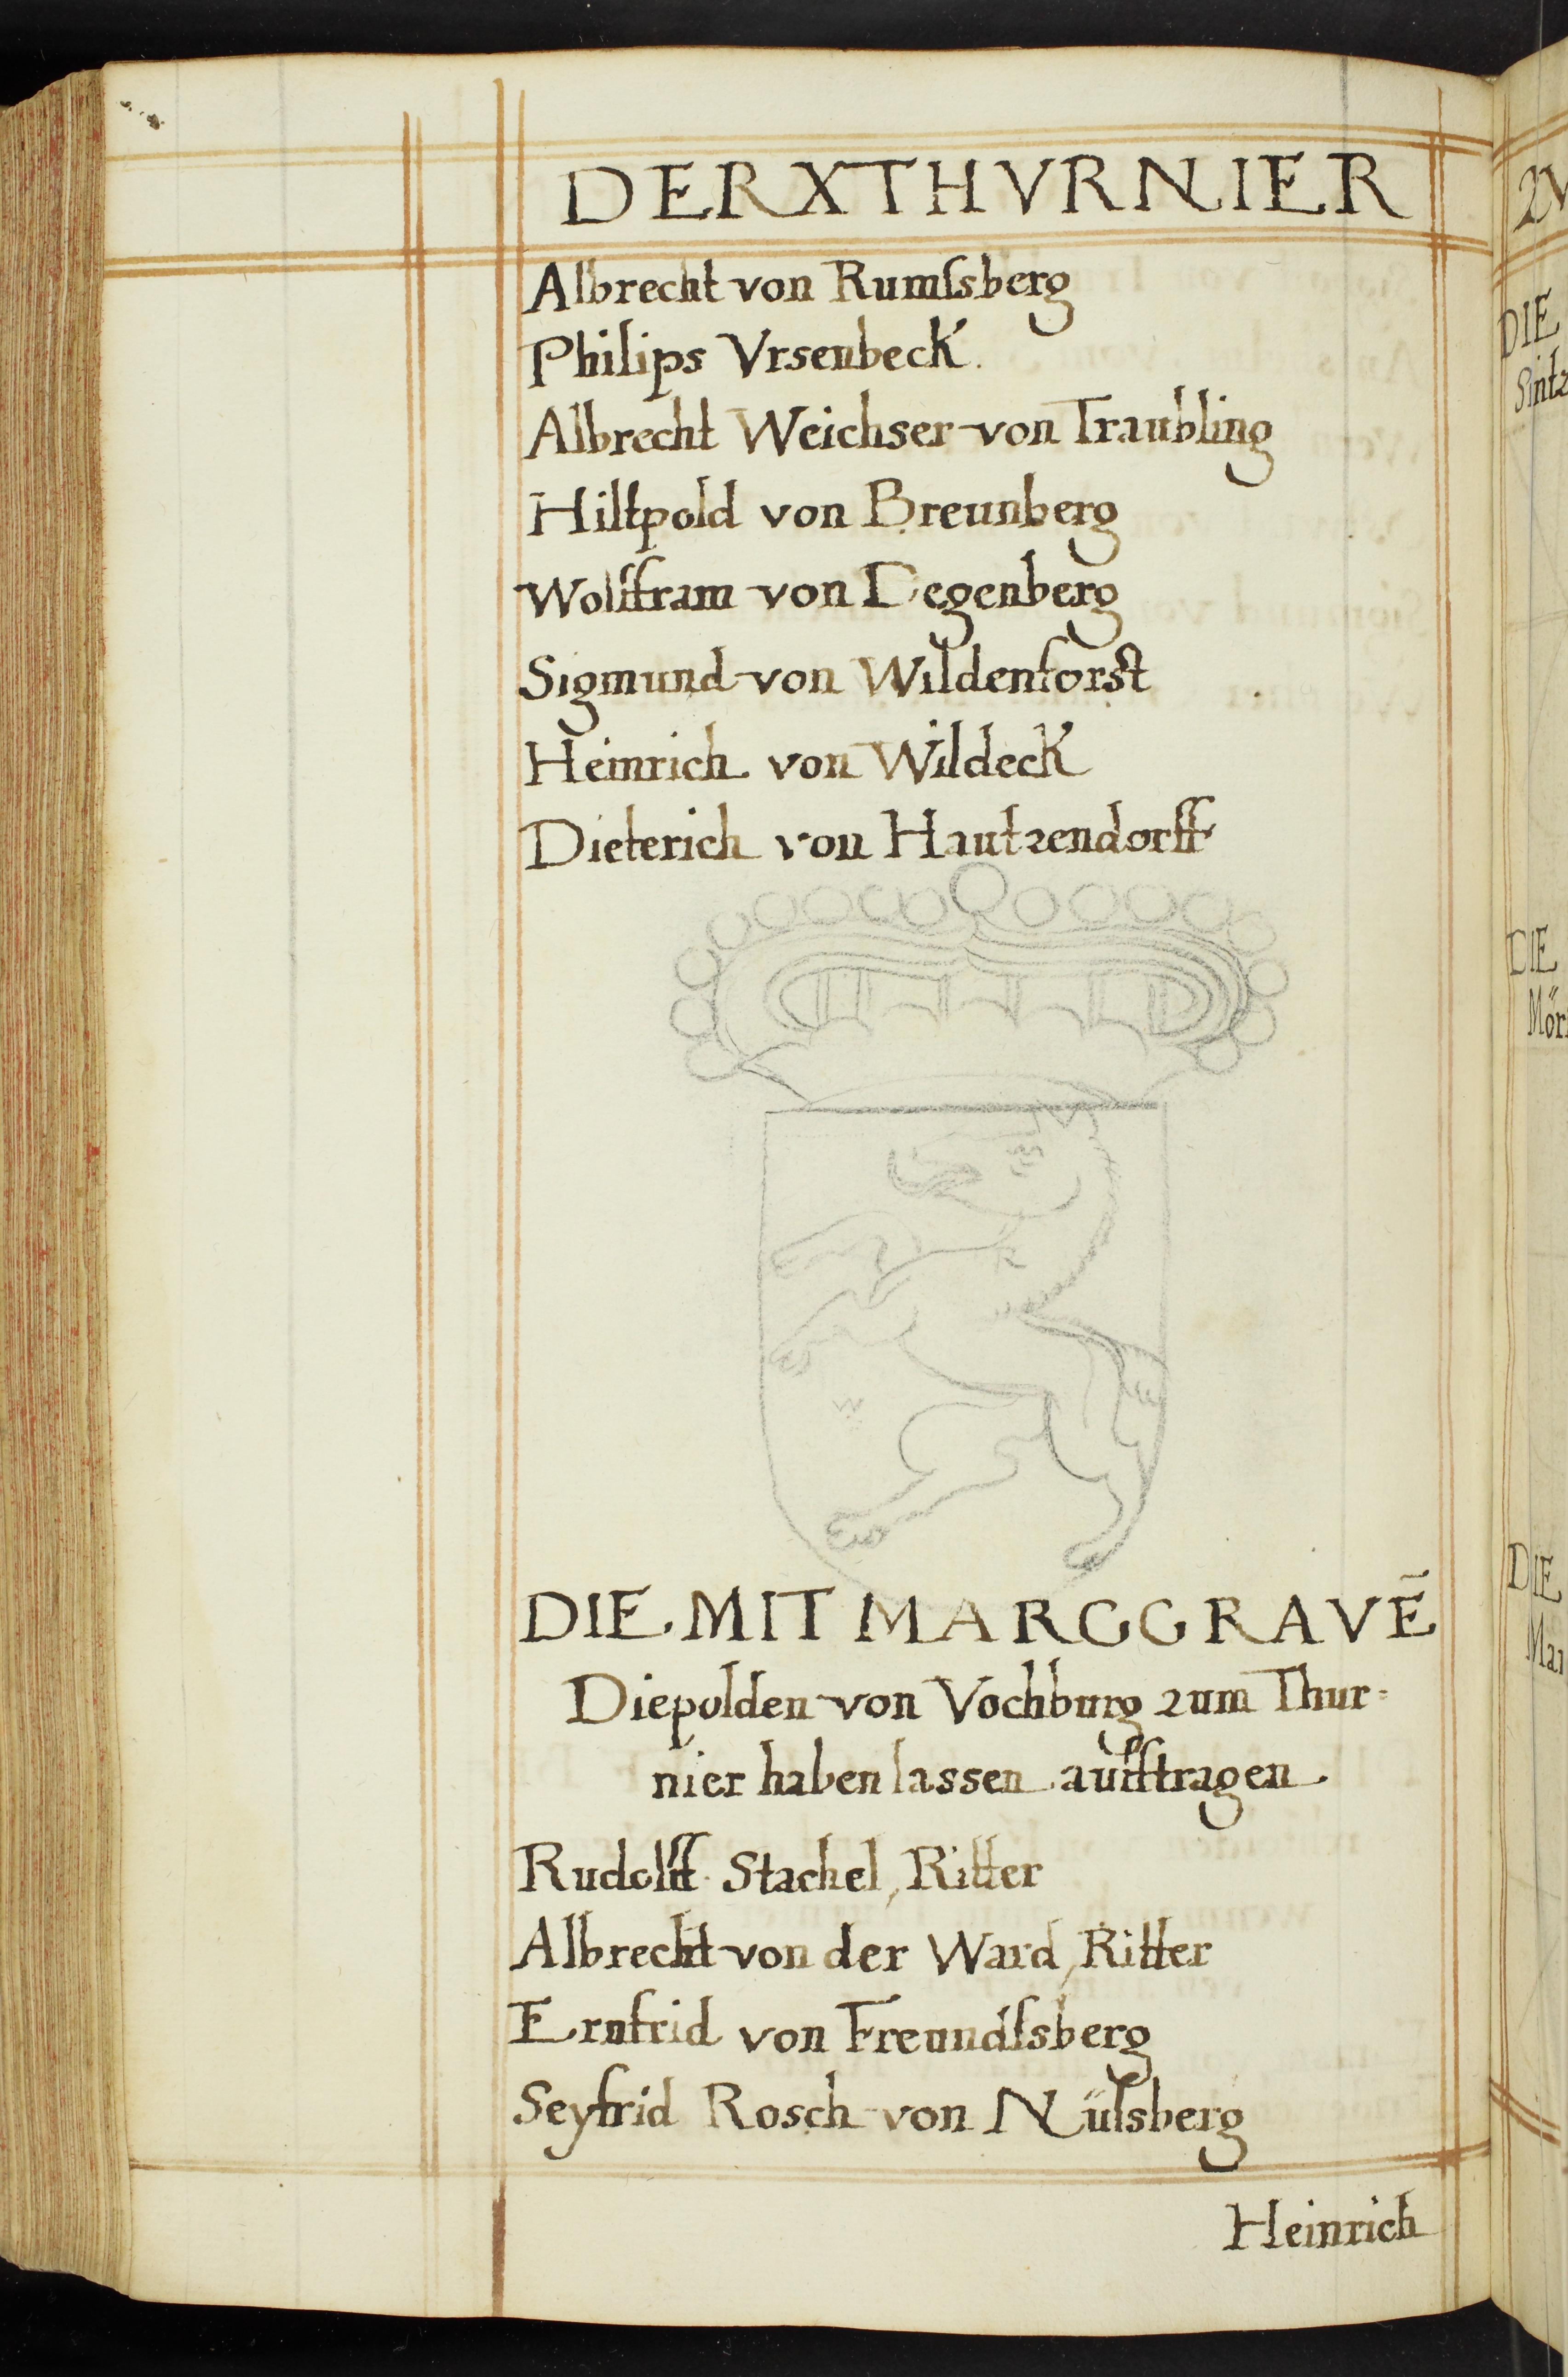 DER X THVRNIER
Albrecht von Rumſsberg
Philips Vrsenbeck.
Albrecht Weichser von Traubling
Hiltpold von Breunberg
Wolffram von Degenberg
Sigmund von Wildenforst
Heinrich von Wildeck
Dieterich von Hautzendorff
DIE MIT MARGGRAVẼ
Diepolden von Vochburg zum Thur=
nier haben lassen aufftragen.
Rudolff Stachel, Ritter
Albrecht von der Ward, Ritter
Ernfrid von Freundſsberg
Seyfrid Rosch von Nüſsberg
Heinrich
DIE
DIE
Mör
DIE